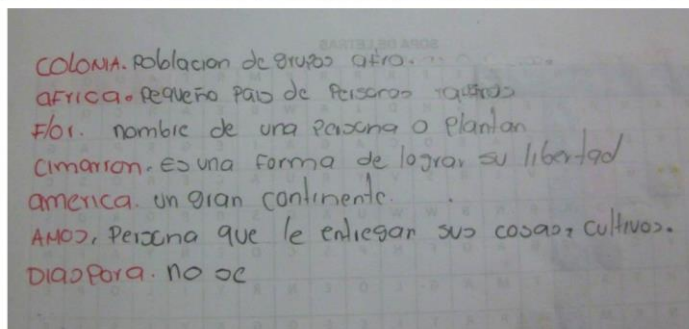 COLONIA. Poblacion de grupos afro.
AFRICA. Pequeño Pais de Personas
Flor. nombre de una Persona o Plantan
Cimarron. Es una forma de lograr su libertad
america. un gran continente.
AMOS, Persona que le entregan sus cosas, cultivos.
DIASPORA. no se